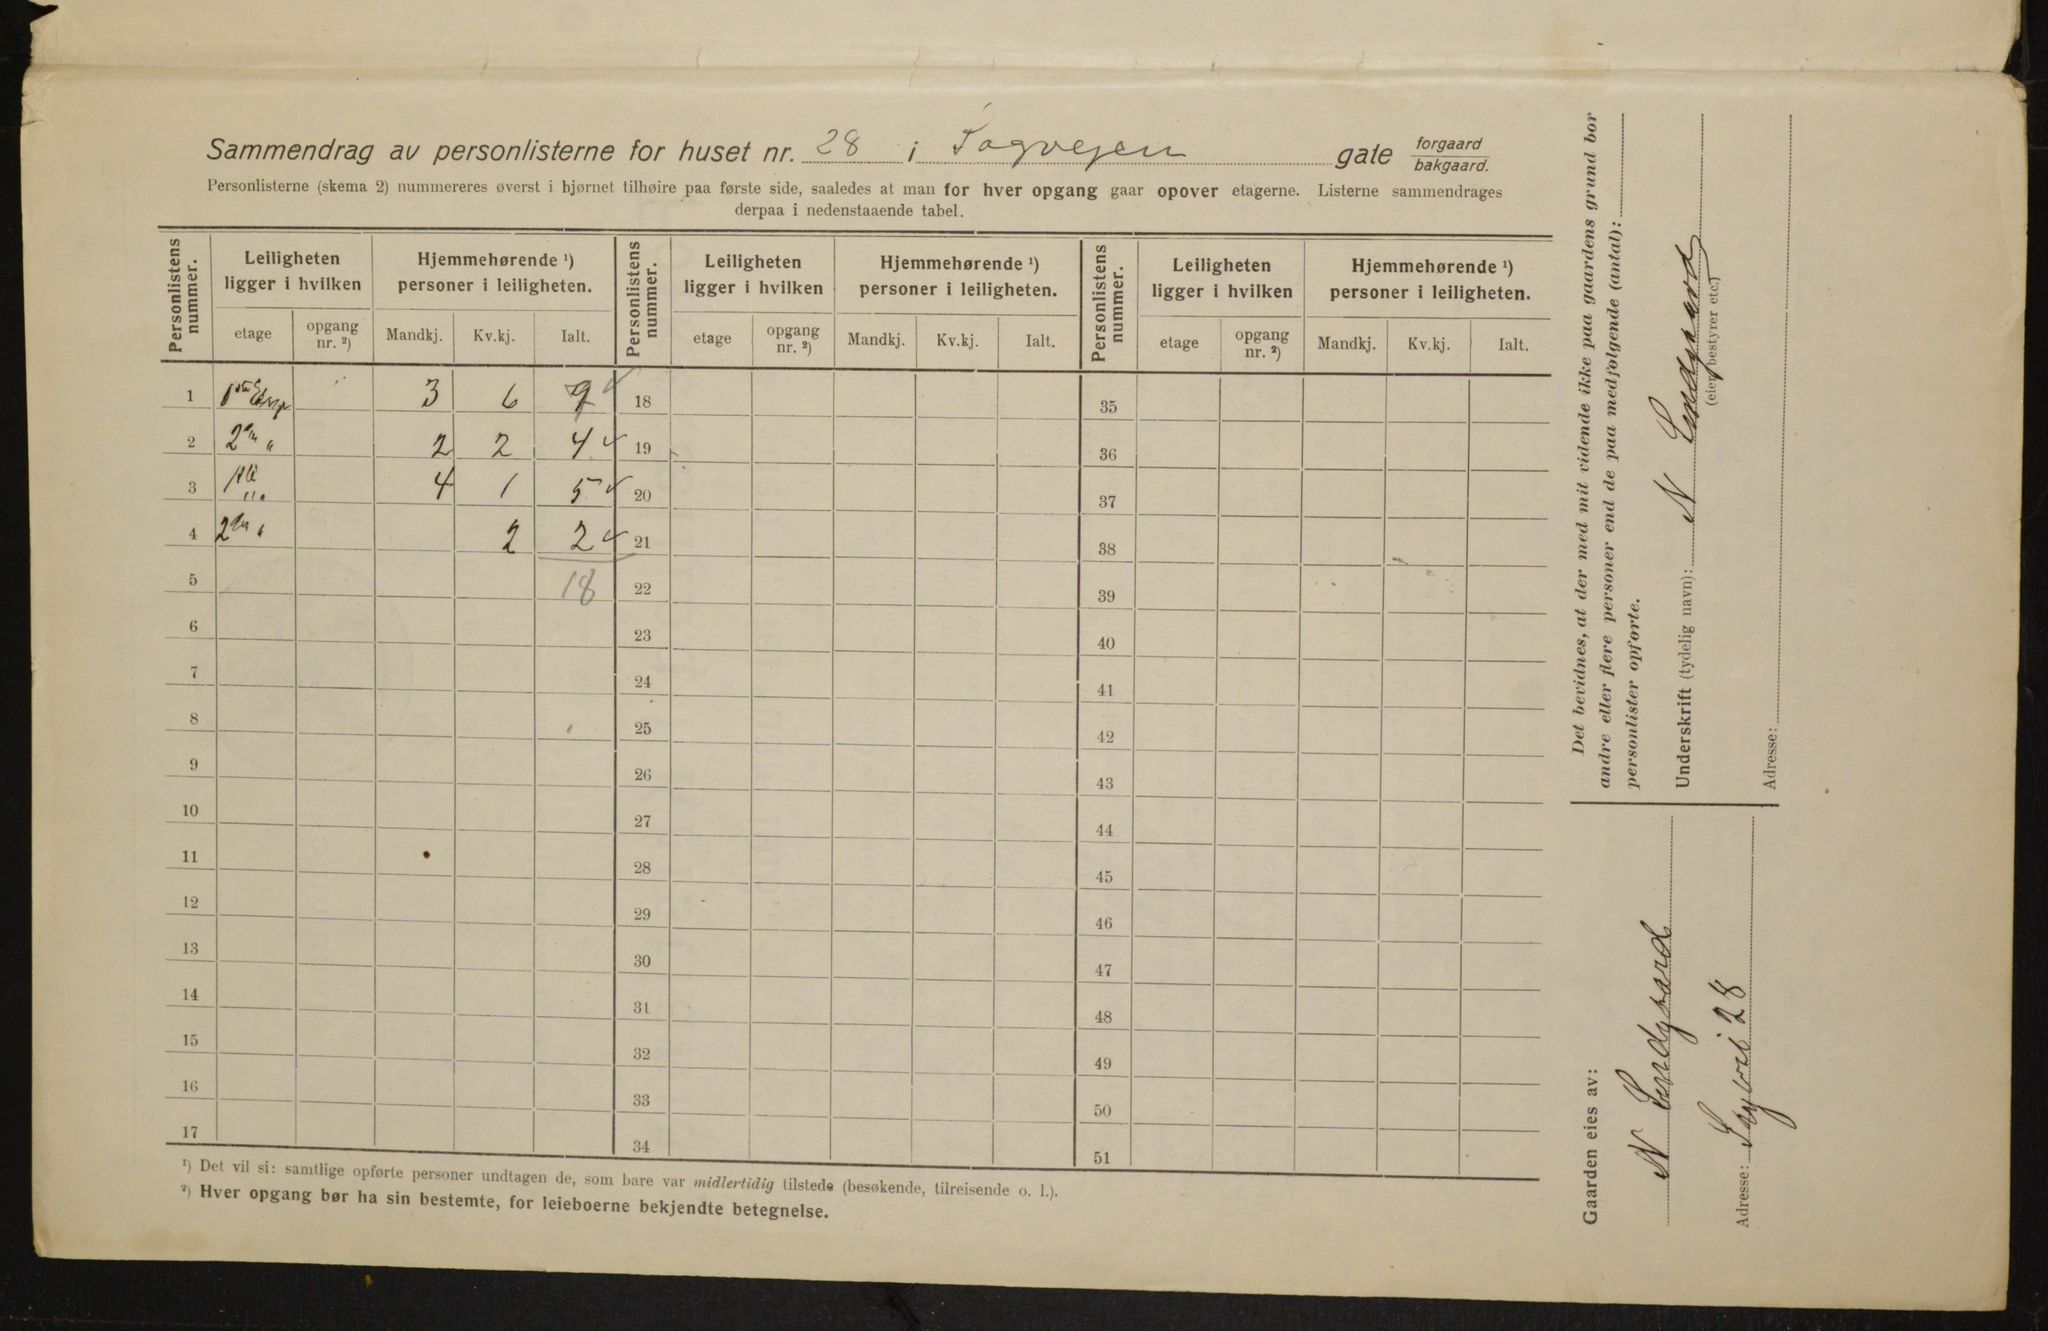 Sammendrag av personlisterne for huset nr. 28 i Sogvejen gate forgaard bakgaard.
Personlisterne (skema 2) nummereres øverst i hjørnet tilhøire paa første side, saaledes at man for hver opgang gaar opover etagerne. Listerne sammendrages
derpaa i nedenstaaende tabel.
Personlistens nummer. Leiligheten ligger i hvilken Hjemmehørende ¹) personer i leiligheten. Personlistens nummer. Leiligheten ligger i hvilken Hjemmehørende ¹) personer i leiligheten. Personlistens nummer. Leiligheten ligger i hvilken Hjemmehørende ¹) personer i leiligheten.
etage opgang nr. ²) Mandkj. Kv.kj. Ialt. etage opgang nr. ²) Mandkj. Kv.kj. Ialt. etage opgang nr. ²) Mandkj. Kv.kj. Ialt.
1 3 6 9 18 35
2 2 2 4 19 36
3 4 1 5 20 37
4 2 2 21 38
5 18 22 39
6 23 40
7 24 41
8 25 42
9 26 43
10 27 44
11 28 45
12 29 46
13 30 47
14 31 48
15 32 49
16 33 50
17 34 51
¹) Det vil si: samtlige opførte personer undtagen de, som bare var midlertidig tilstede (besøkende, tilreisende o. l.).
²) Hver opgang bør ha sin bestemte, for leieboerne bekjendte betegnelse.
Det bevidnes, at der med mit vidende ikke paa gaardens grund bor
andre eller flere personer end de paa medfølgende (antal):
personlister opførte.
Underskrift (tydelig navn): N Endgaard
(eier, bestyrer etc.)
Adresse:
Gaarden eies av:
N Endgaard
Adresse: Sogvei 28